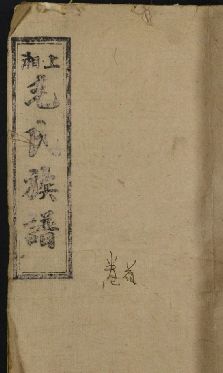 上湘
毛氏族譜
卷首